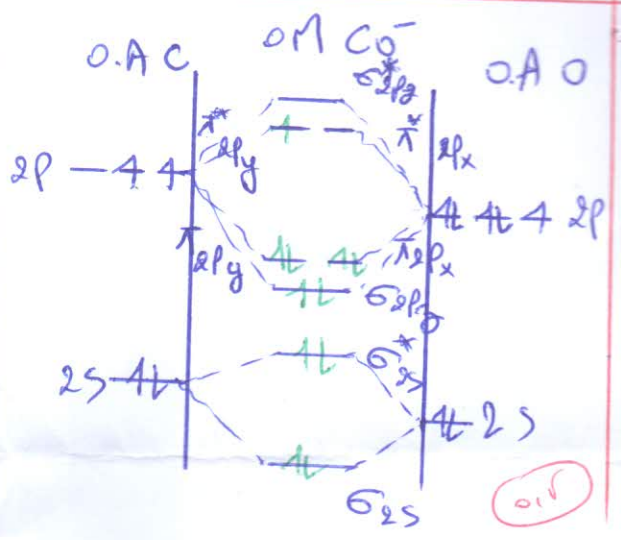 O.A C
OM CO⁻
O.A O
σ*2pz
π*2py
π* 2px
2P
2P
π2py
π2px
σ2pz
2S
σ*2s
2S
σ2s
0,5